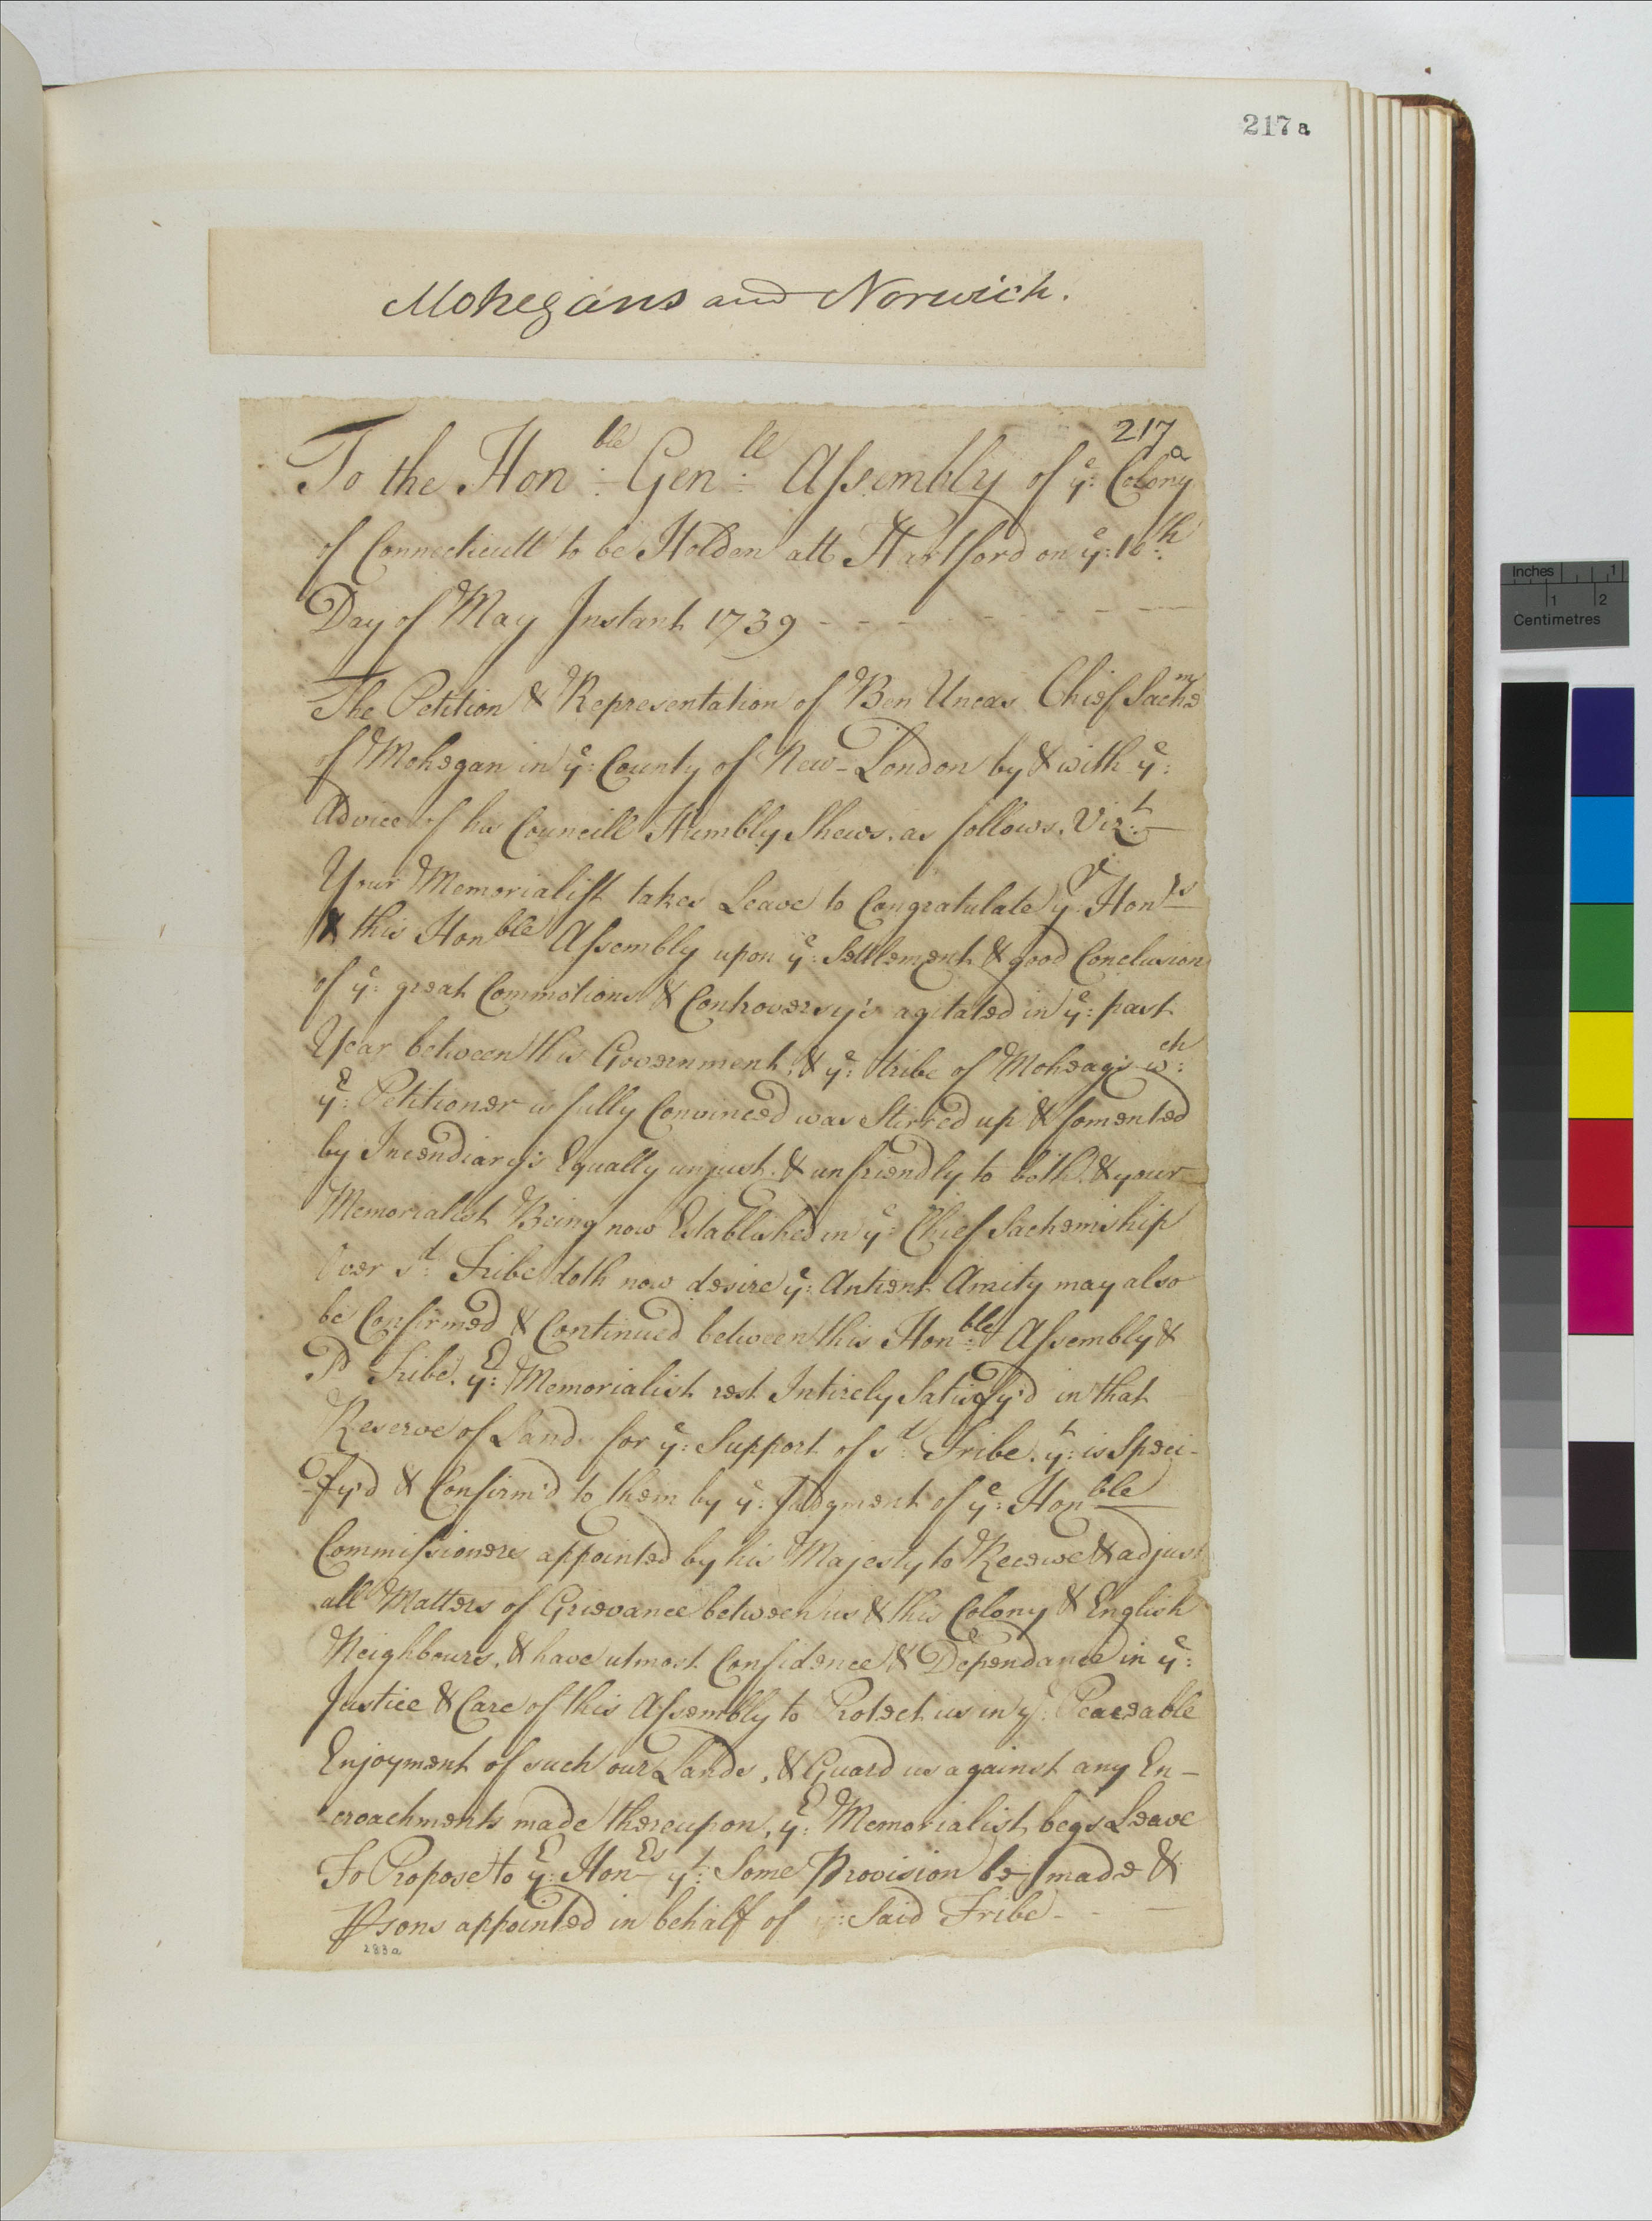 217 a
Mohegans and Norwich.
217
a
To the Hon:ble Gen:ll Assembly of ye: Colony
of Connecticutt to be Holden att Hartford on ye: 10:th
Day of May Instant 1739 - - - - - - - -
The Petition & Representation of Ben Uncas Chief Sachem
of Mohegan in ye: County of New-London by & with ye:
Advice of his Councill Humbly Shews, as follows, Vizt:
Your Memorialist takes Leave to Congratulate yr: Honrs
& this Honble Assembly upon ye: Settlement & good Conclusion
of ye: great Commotions & Controversy's agitated in ye: past
Year between this Government, & ye: tribe of Moheags wch:
yr: Petitioner is fully Convinced was Stirred up & fomented
by Incendiary's Equally unjust & unfriendly to both, & your
Memorialist Being now Established in ye: Chief Sachemship
Over sd: Tribe doth now desire ye: Antient Amity may also
be Confirmed & Continued between this Hon:ble Assembly &
sd Tribe. yr: Memorialist rest Intirely Satisfy'd in that
Reserve of Land for ye: Support of sd: Tribe, yt: is Speci-
-fy'd & Confirm'd to them by ye: Judgment of ye: Honble
Commissioners appointed by his Majesty to Receive & adjust
all Matters of Grievance between us & this Colony & English
Neighbours, & have utmost Confidence & Dependance in ye:
Justice & Care of this Assembly to Protect us in ye: Peaceable
Enjoyment of such our Lands, & Guard us against any En-
-croachments made thereupon, yr: Memorialist begs Leave
To Propose to yr: Honrs yt: Some Provision be made &
Psons appointed in behalf of : Said Tribe - - -
283a
Inches 1
1 2
Centimetres